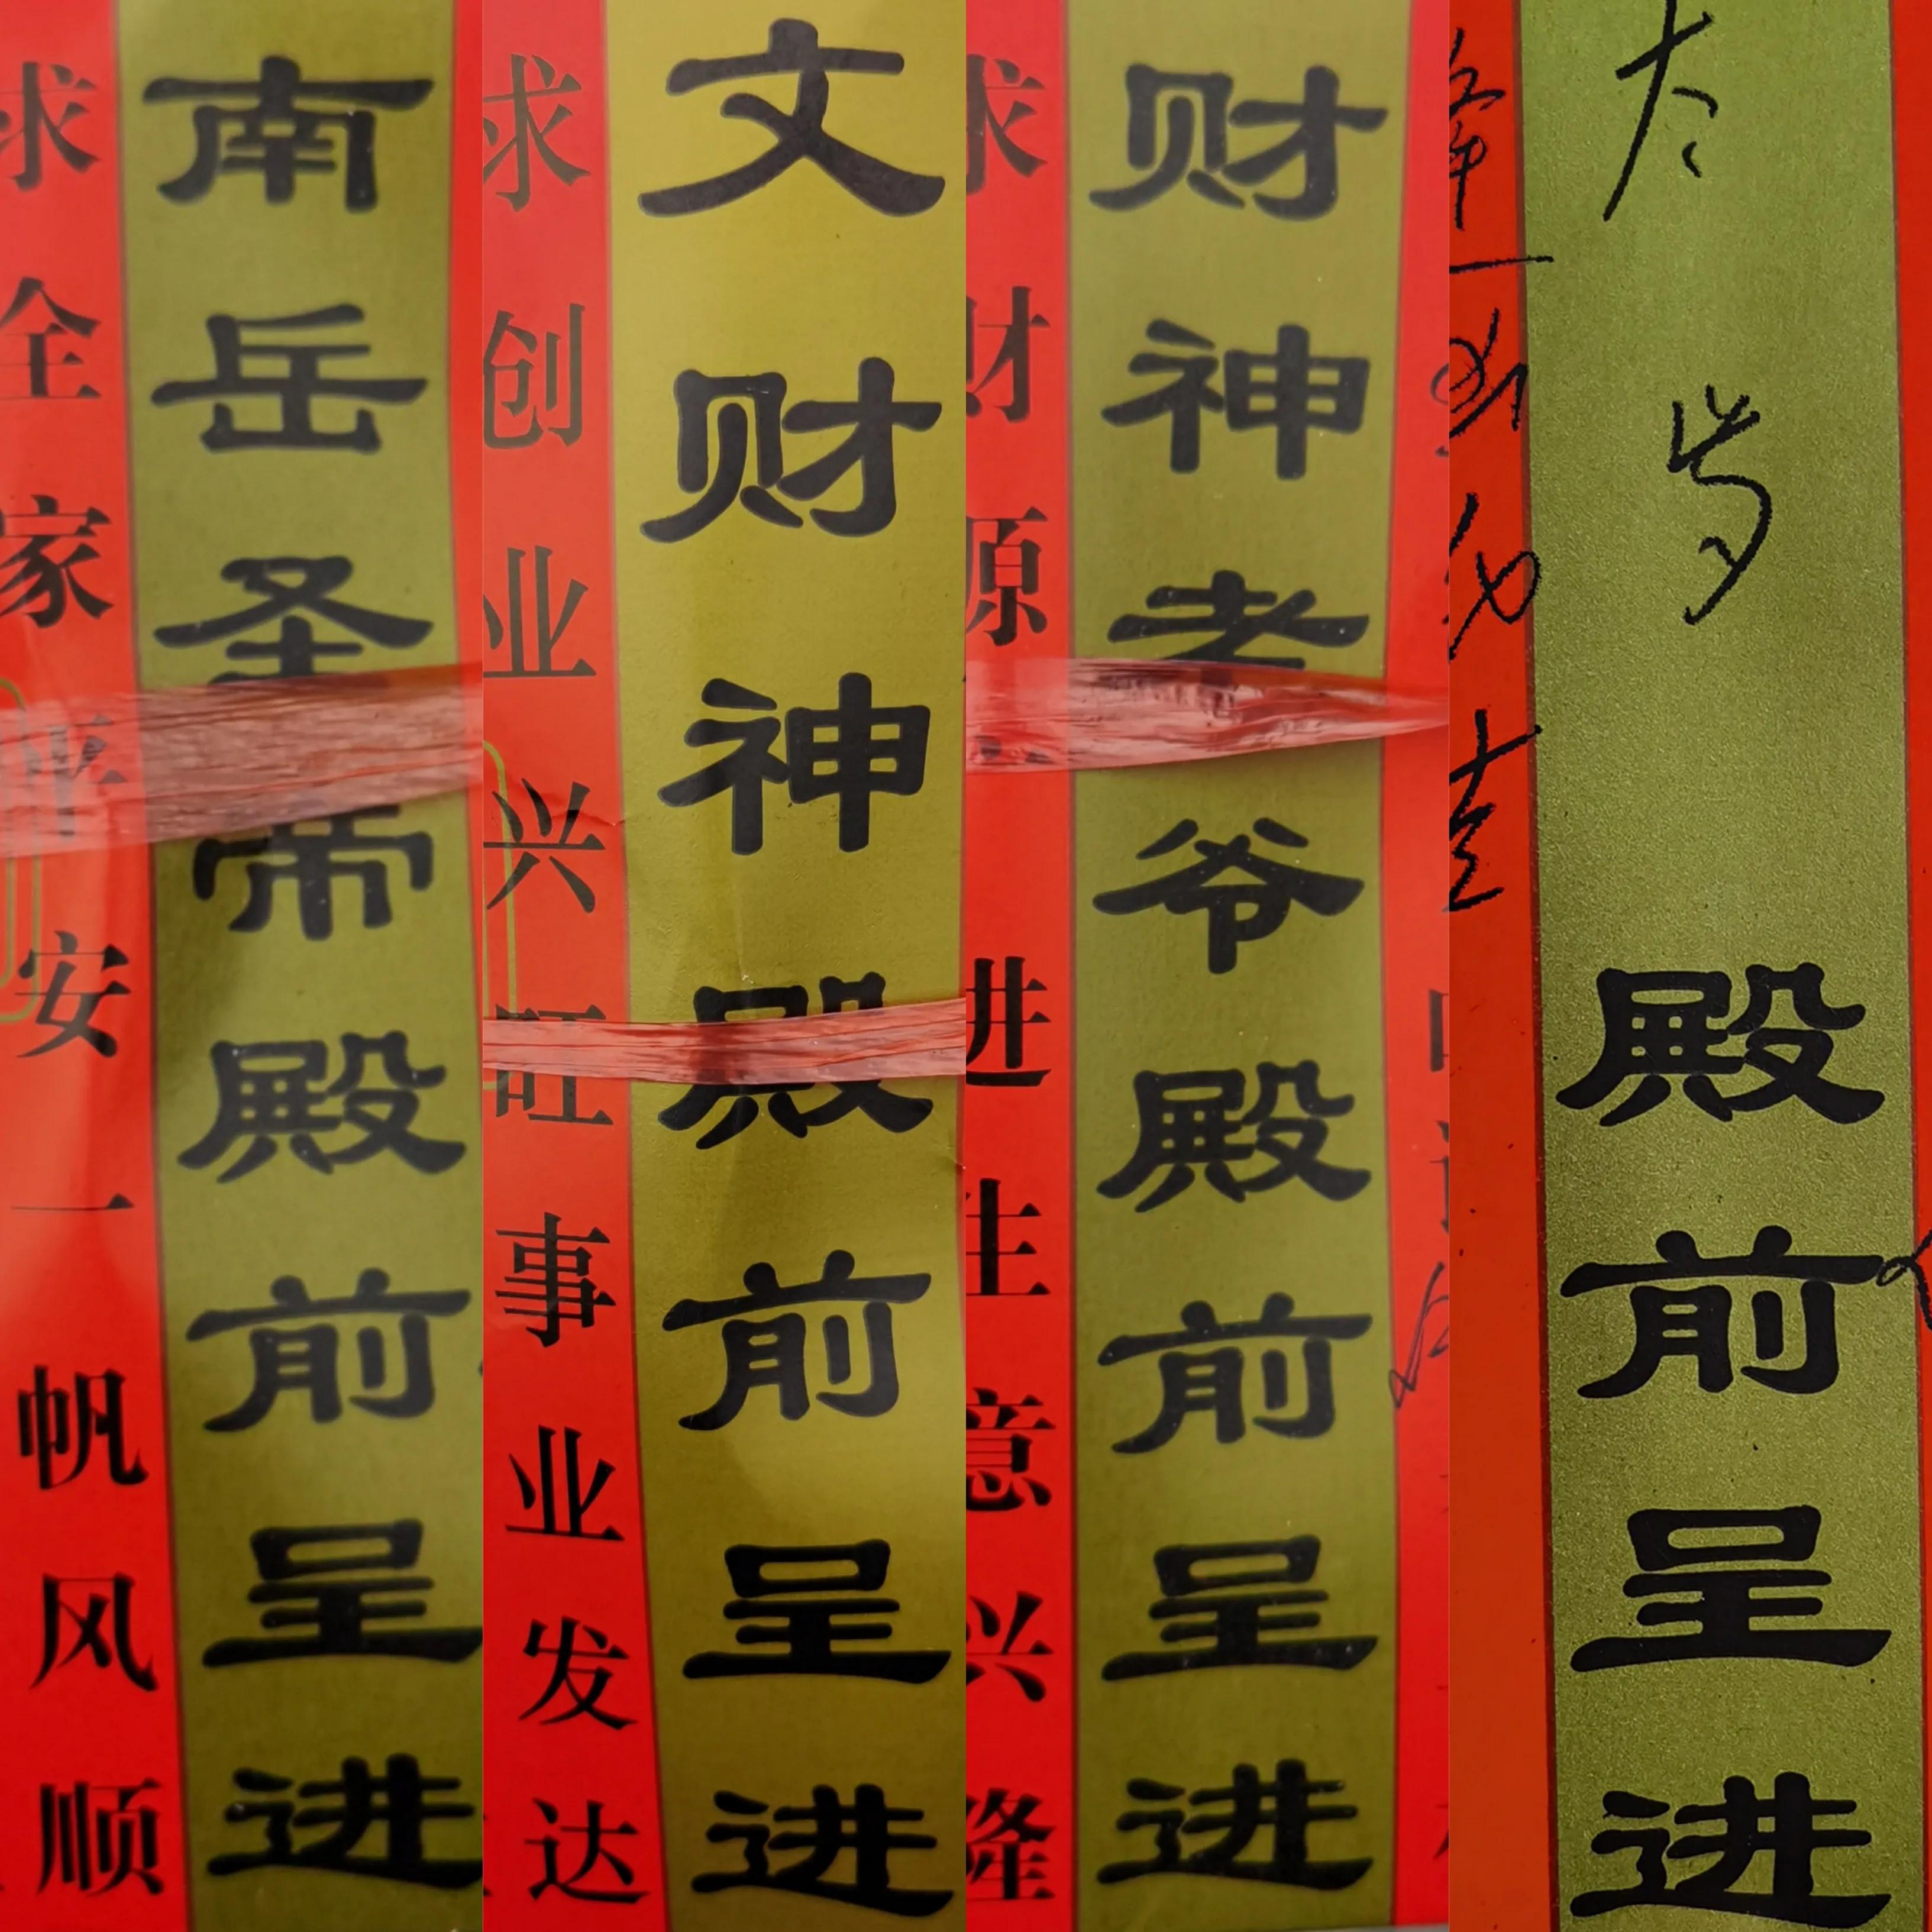 求全家平安一帆风顺
南岳圣帝殿前呈进
求创业兴旺事业发达
文财神殿前呈进
求财源 进生意兴隆
财神老爷殿前呈进
太岁 殿前呈进